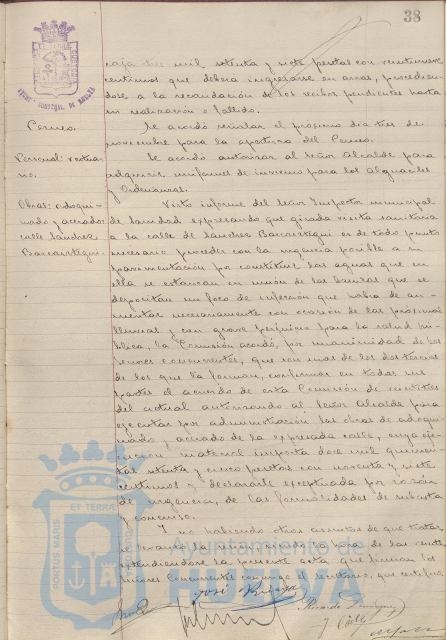 38
caja tres mil setenta y siete pesetas con veintinueve
centimos que deberá ingresarse en arcas, procedien-
dose a la recaudación de los recibos pendientes hasta
su realización o fallido.
Censo.
Se acordó señalar el proximo dia tres de
noviembre para la apertura del Censo.
Personal: vestua-
rio.
Se acordó autorizar al Señor Alcalde para
adquirir uniformes de invierno para los Alguaciles
y Ordenanzas.
Obras: adoqui-
nado y acerado:
calle Sanchez
Barcaiztegui.
Visto informe del Señor Inspector municipal
de Sanidad expresando que girada visita sanitaria
a la calle de Sanchez Barcaiztegui es de todo punto
necesario proceder con la urgencia posible a su
pavimentación por constituir las aguas que en
ella se estancan en unión de las basuras que se
depositan un foco de infección que habia de au-
mentar necesariamente con ocasion de las proximas
lluvias y con grave perjuicio para la salud pú-
blica, la Comisión acordó, por unanimidad de los
Señores concurrentes, que son mas de los dos tercios
de los que la forman, confirmar en todas sus
partes el acuerdo de esta Comisión de veintitres
del actual autorizando al Señor Alcalde para
ejecutar por administración las obras de adoqui-
nado y acerado de la expresada calle, cuya eje-
cucion material importa doce mil quinien-
tas setenta y cinco pesetas con noventa y siete
centimos y declararle exceptuada por razón
de urgencia, de las formalidades de subasta
y concurso.
Y no habiendo otros asuntos de que tratar,
se levantó la sesión siendo la hora de las siete
extendiendose la presente acta que firman los
Señores Concurrentes conmigo el Secretario, que certifico.
José
Ayuntamiento de
HUELVA
PORTUS MARIS ET TERRAE CUSTODIA